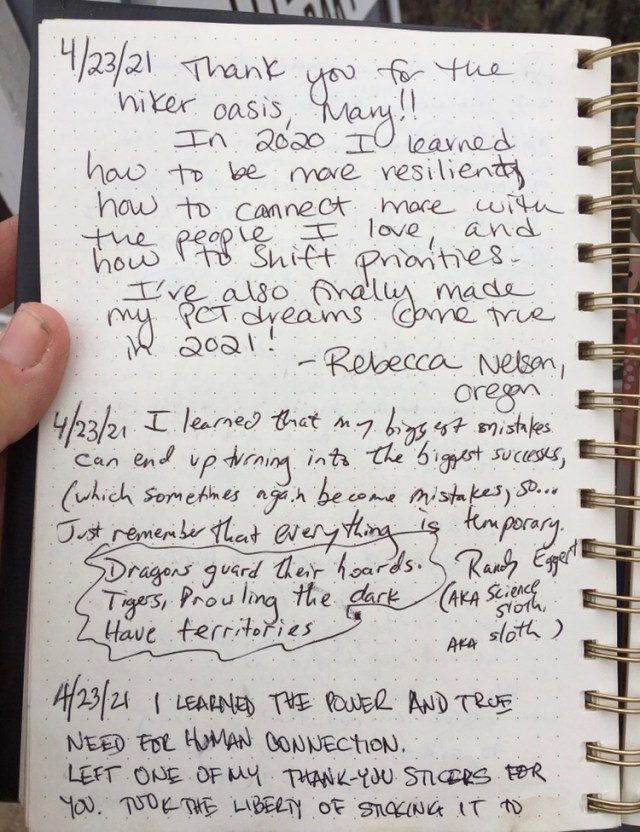 4/23/21 Thank you for the
hiker oasis, Mary!!
In 2020 I learned
how to be more resilient,
how to connect more with
the people I love, and
how to shift priorities-
I've also finally made
my PCT dreams come true
in 2021!
-Rebecca Nelson,
Oregon
4/23/21 I learned that my biggest mistakes
can end up turning into the biggest successes,
(which sometimes again become mistakes, so...
Just remember that everything is temporary.
Dragons guard their hoards.
Tigers, Prowling the dark
Have territories
Randy Eggert
(AKA Science
sloth,
AKA sloth)
4/23/21 I LEARNED THE POWER AND TRUE
NEED FOR HUMAN CONNECTION.
LEFT ONE OF MY THANK-YOU STICKERS FOR
YOU. TOOK THE LIBERTY OF STICKING IT TO